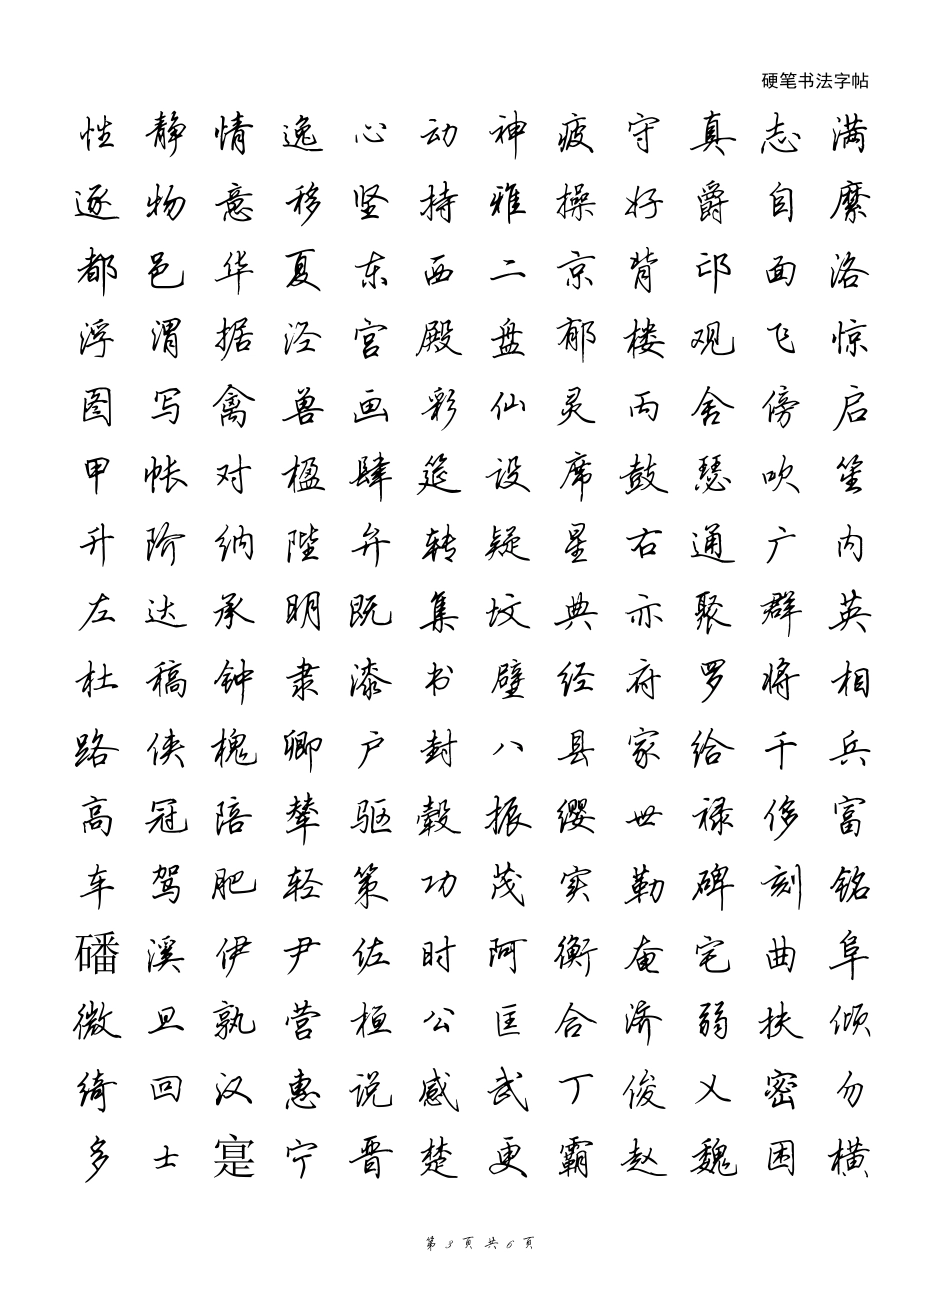 硬笔书法字帖
性静情逸心动神疲守真志满
逐物意移坚持雅操好爵自縻
都邑华夏东西二京背邙面洛
浮渭据泾宫殿盘郁楼观飞惊
图写禽兽画彩仙灵丙舍傍启
甲帐对楹肆筵设席鼓瑟吹笙
升阶纳陛弁转疑星右通广内
左达承明既集坟典亦聚群英
杜稿钟隶漆书壁经府罗将相
路侠槐卿户封八县家给千兵
高冠陪辇驱毂振缨世禄侈富
车驾肥轻策功茂实勒碑刻铭
磻溪伊尹佐时阿衡奄宅曲阜
微旦孰营桓公匡合济弱扶倾
绮回汉惠说感武丁俊乂密勿
多士寔宁晋楚更霸赵魏困横
第 3 页 共 6 页